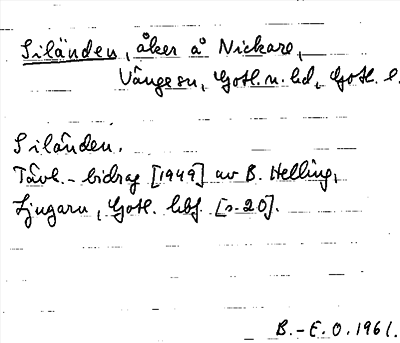 Siländen, åker å Nickarve,
Vänge sn, Gotl. n. hd, Gotl. l.
Siländen.
Tävl.-bidrag [1949] av B. Helling,
Ljugarn, Gotl. hbf. [s. 20].
B.-E. O. 1961.